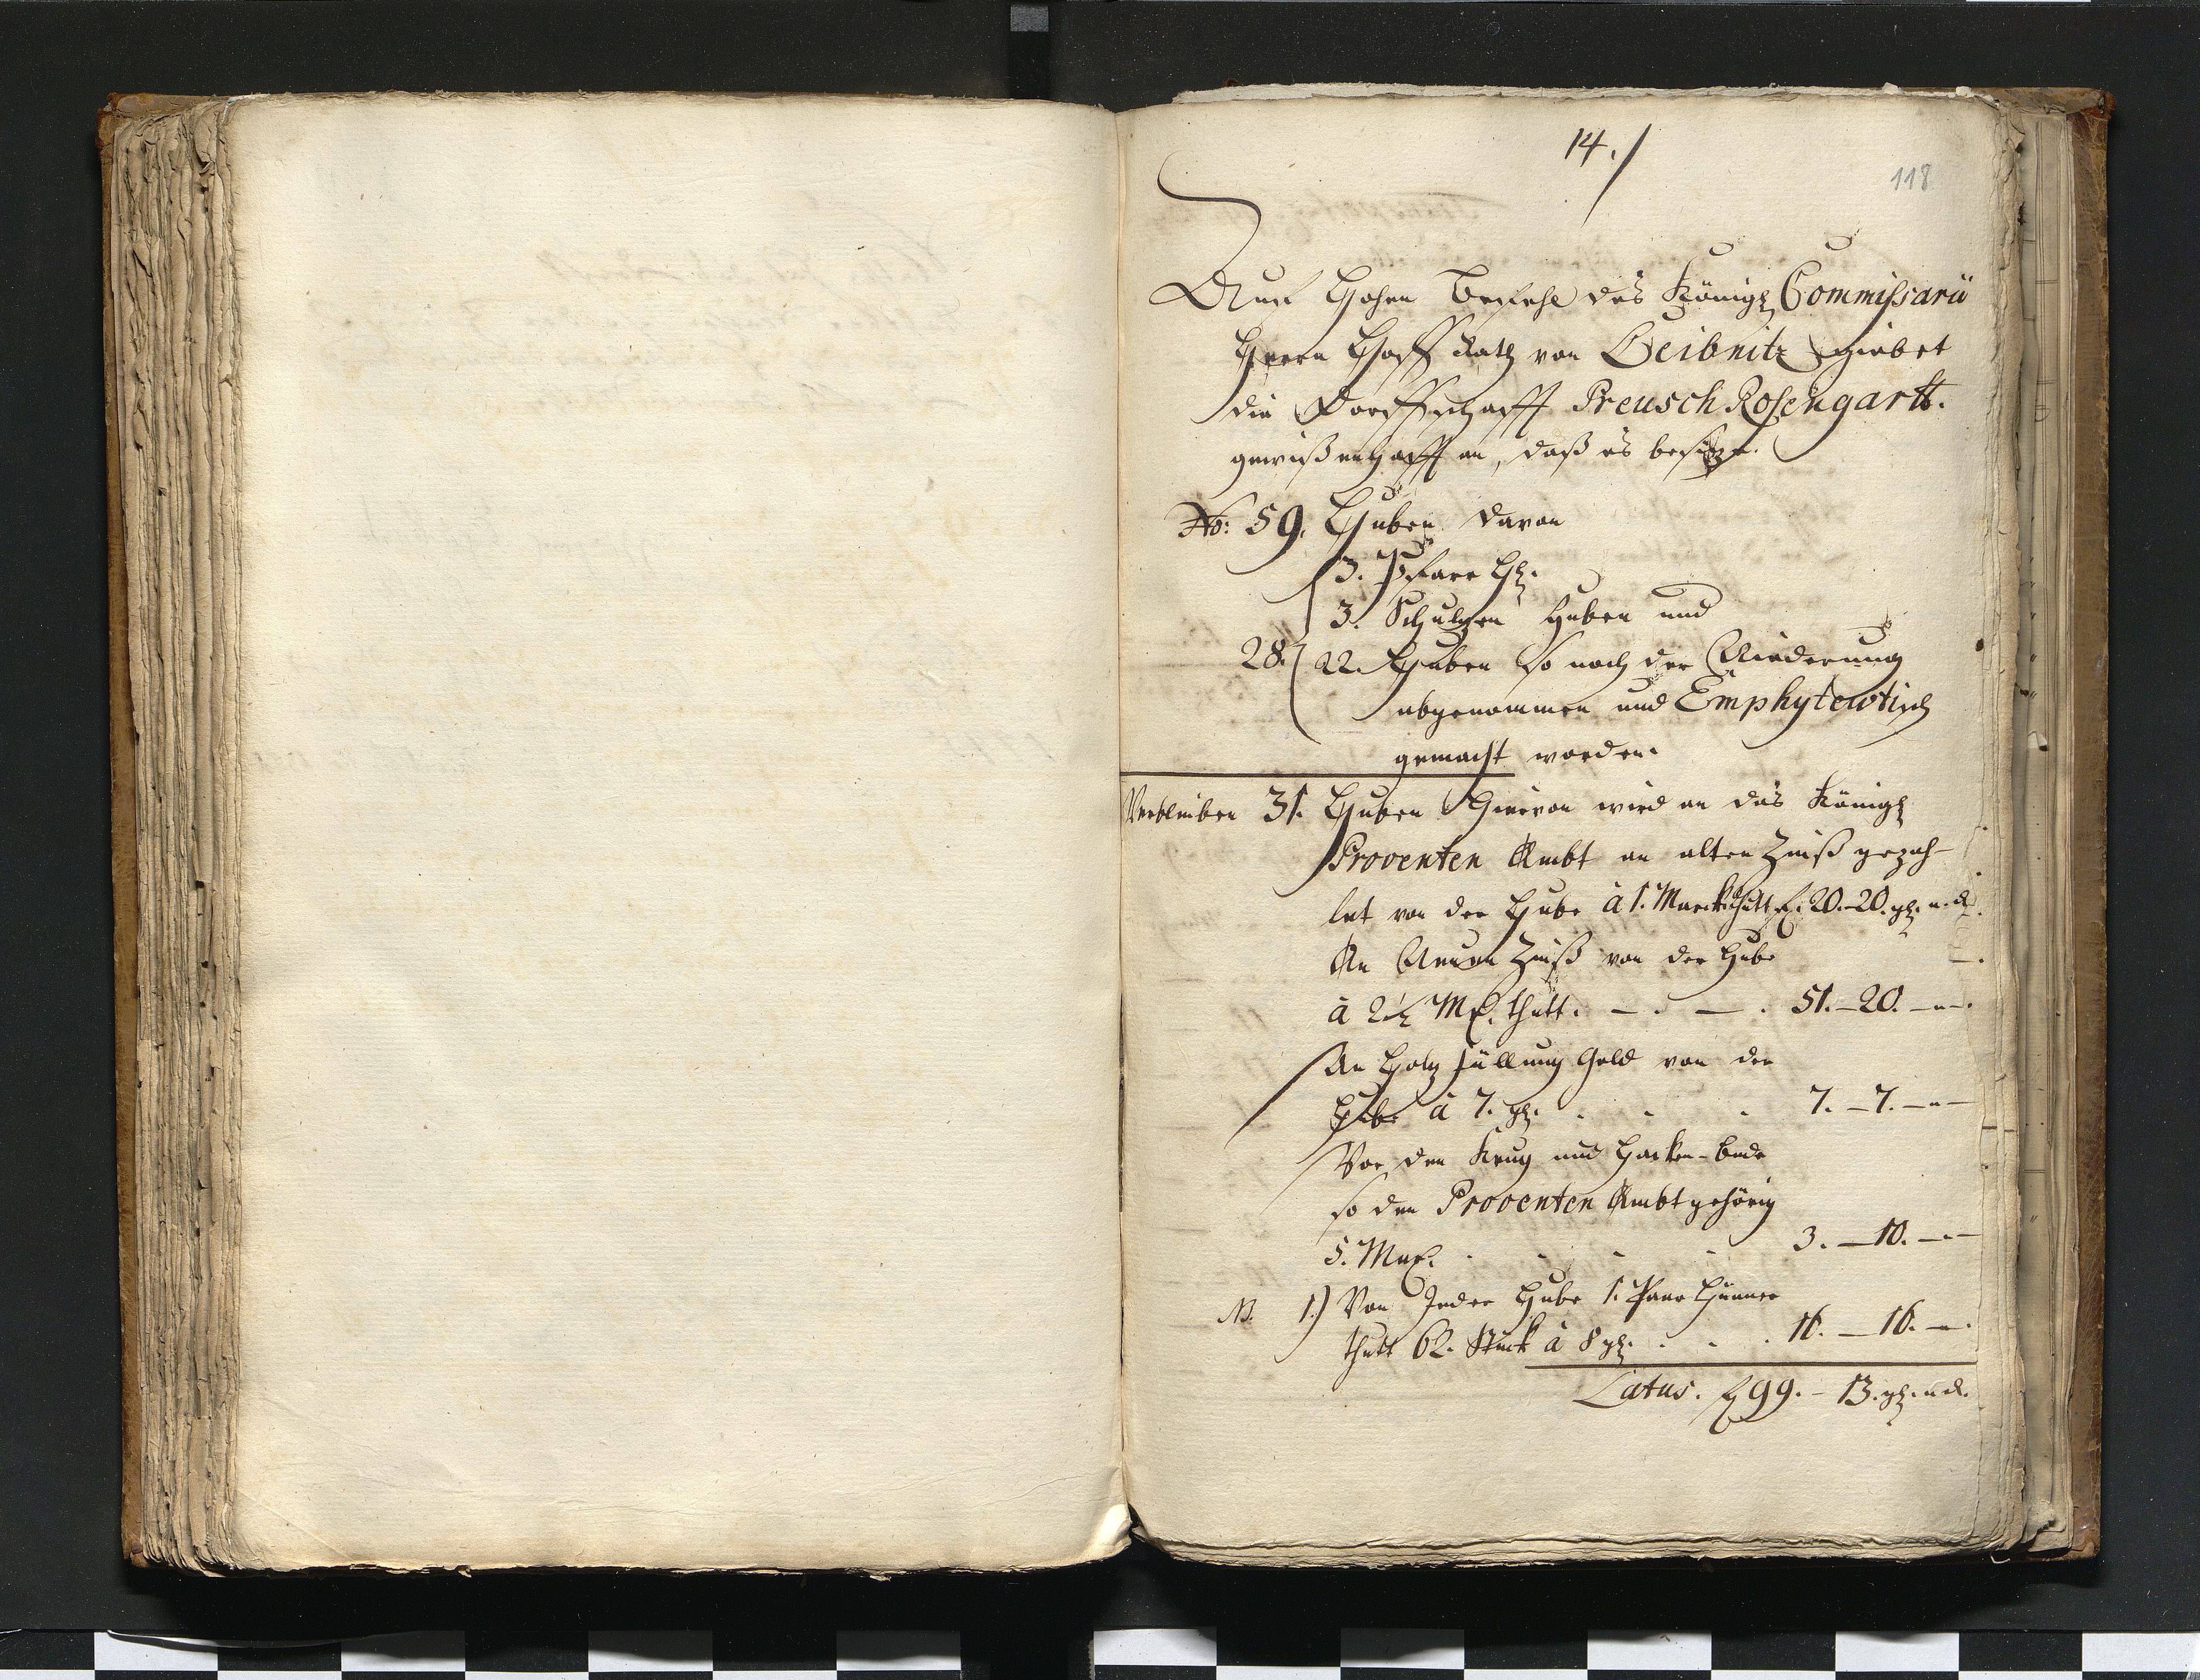 14.
118
Auf Hohen Befehl des Königl Commissarii
Herrn Hoff Rath von Leibnitz giebet
die Dorffschafft Preusch Rosengartt.
gewißenhafft an, daß es besitze.
No: 59. Huben davon
3. Pfarr H.
3. Schultzen Huben und
28. 22. Huben so nach der Niederung
abgenommen und Emphytevtisch
gemacht worden.
Verbleiben 31. Huben Hievon wird an das Königl
Proventen Ambt an alten Zinß gezah-
let von der Hube à 1. Marck thutt f. 20.-20. gl. „ d.
An Neuen Zinß von der Hube
à 2½ Mk. thutt. — . — . 51.-20. —„—.
An Holtz füllung Geld von der
Hube à 7. gl. . . . 7.-7.—„—
Vor den Krug und Hacken-bude
so den Proventen Ambt gehörig
5. Mk. . . . . 3.—10.—„—
NB. 1.) Von Jeder Hube 1. Paar Hünner
thutt 62. Stück à 8 gl. . . . 16.—16.—„.
Latus. f 99.- 13. gl. „ d.